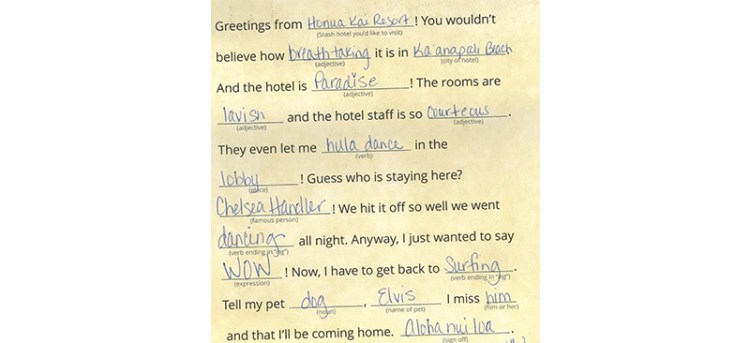 Greetings from Honua Kai Resort! You wouldn't
(Stash hotel you'd like to visit)
believe how breathtaking it is in Ka'anapali Beach
(adjective) (city of hotel)
And the hotel is Paradise! The rooms are
(adjective)
lavish and the hotel staff is so courteous.
(adjective) (adjective)
They even let me hula dance in the
(verb)
lobby! Guess who is staying here?
(place)
Chelsea Handler! We hit it off so well we went
(famous person)
dancing all night. Anyway, I just wanted to say
(verb ending in "ing")
WOW! Now, I have to get back to Surfing.
(expression) (verb ending in "ing")
Tell my pet dog, Elvis I miss him
(noun) (name of pet) (him or her)
and that I'll be coming home. Aloha nui loa.
(sign off)